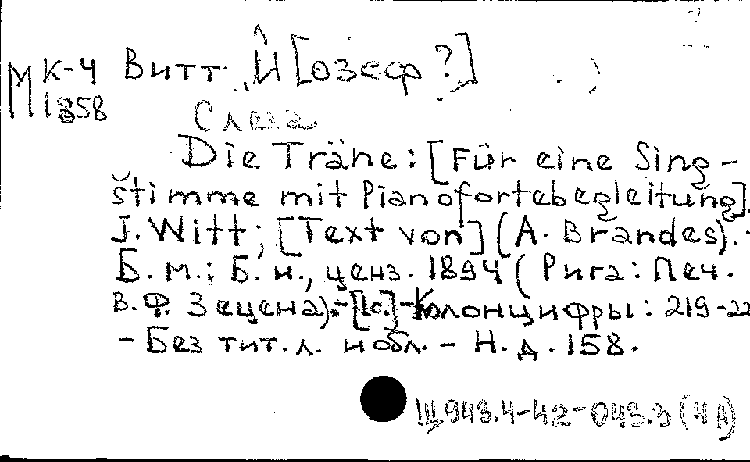 М К-4 Витт, Й [озеф ?]
1358
Слеза
Die Träne: [Für eine Sing-
stimme mit Pianofortebegleitung].
J. Witt; [Text von] (A. Brandes).-
Б.м.: Б.и., ценз. 1894 (Рига: Печ.
В.Ф. Зецена).-[1с.]-Колонцифры: 219-22
- Без тит.л. и обл. - Н.д. 158.
Щ943.4-42-043.3 (4Л)